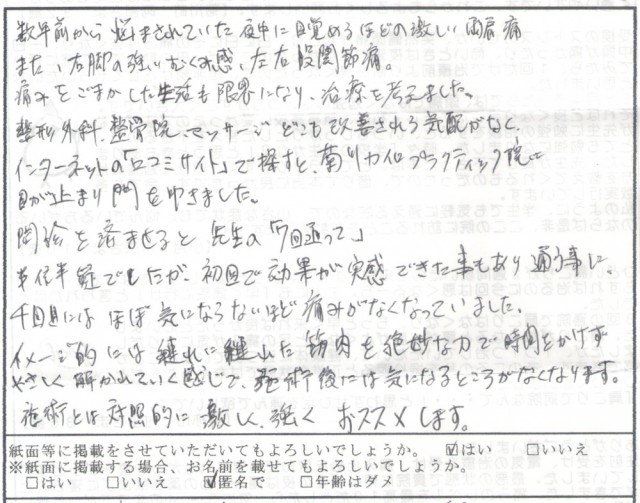 数年前から悩まされていた夜中に目覚めるほどの激しい両肩痛
また、右脚の強いむくみ感、左右股関節痛。
痛みをごまかした生活も限界になり、治療を考えました。
整形外科、整骨院、マッサージ どこも改善される気配がなく
インターネットの「口コミサイト」で探すと、南リカイロプラクティック院に
目が止まり門を叩きました。
問診を済ませると 先生の「7回通って」
半信半疑でしたが、初回で効果が実感できた事もあり通う事に、
4回目には ほぼ気にならないほど痛みがなくなっていました。
イメージ的には 縺れに縺れた筋肉を絶妙な力で時間をかけず
やさしく解かれていく感じで、施術後には気になるところがなくなります。
施術とは対照的に激しく、強く おススメします。
紙面等に掲載をさせていただいてもよろしいでしょうか。 ☑はい □いいえ
※紙面に掲載する場合、お名前を載せてもよろしいでしょうか。
□はい □いいえ ☑匿名で □年齢はダメ